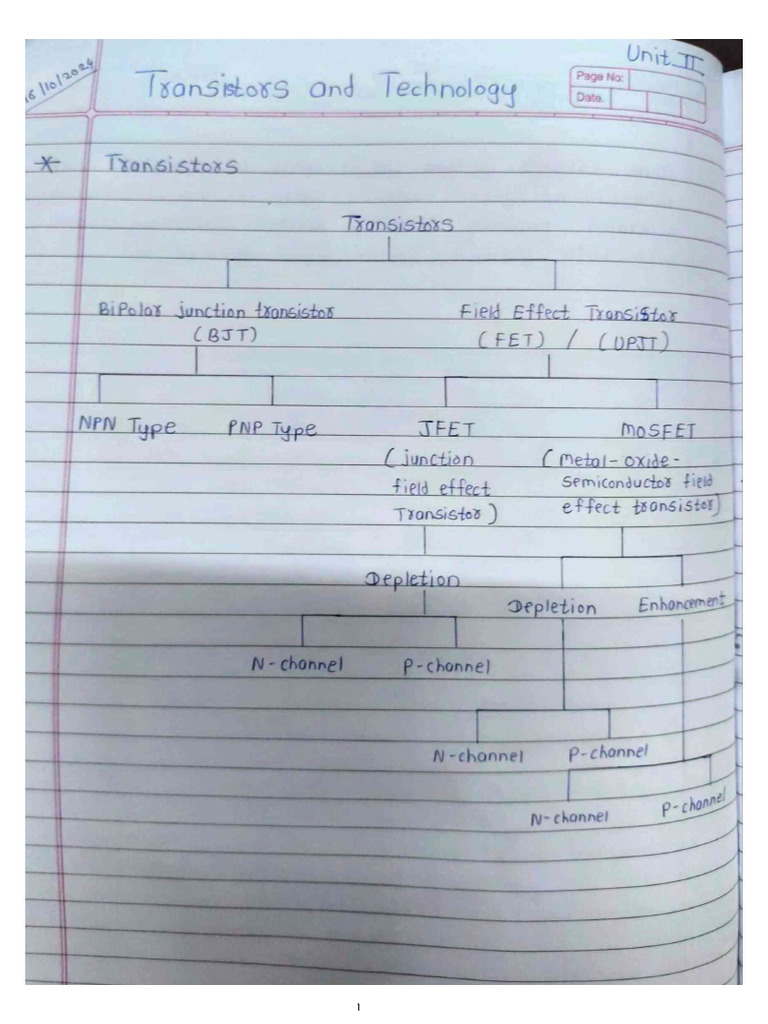 Unit II
16/10/2024
Transistors and Technology
Page No:
Date.
Transistors
Transistors
BiPolar junction transistor
(BJT)
Field Effect Transistor
(FET) / (UPJT)
NPN Type
PNP Type
JFET
(junction
field effect
Transistor)
MOSFET
(metal-oxide-
semiconductor field
effect transistor)
Depletion
N-channel
P-channel
Depletion
Enhancement
N-channel
P-channel
N-channel
P-channel
1